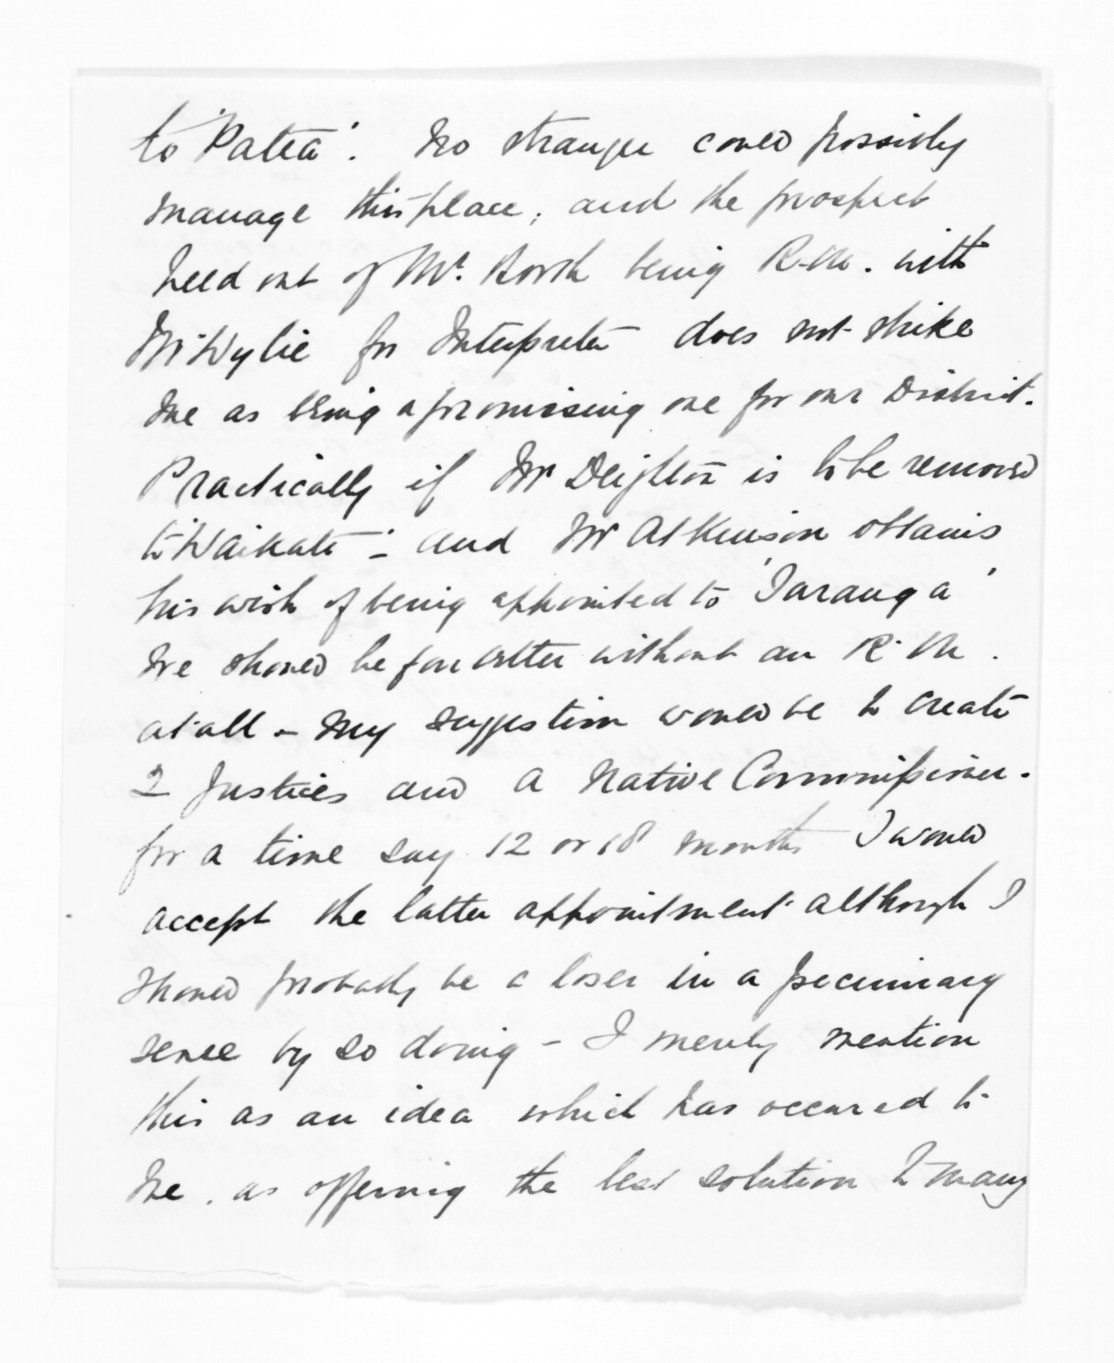 to 'Patea'. No stranger could possibly
manage this place, and the prospect
held out of Mr. Booth being R.M. with
Mr Wylie for Interpreter does not strike
me as being a promising one for our District.
Practically if Mr Deighton is to be removed
to 'Waikato' - and Mr Atkinson obtains
his wish of being appointed to 'Tauranga'
we should be far better without an R.M.
at all - My suggestion would be to create
2 Justices and a Native Commissioner.
for a time say 12 or 18 months I would
accept the latter appointment although I
should probably be a loser in a pecuniary
sense by so doing - I merely mention
this as an idea which has occured to
me. as offering the best solution to many